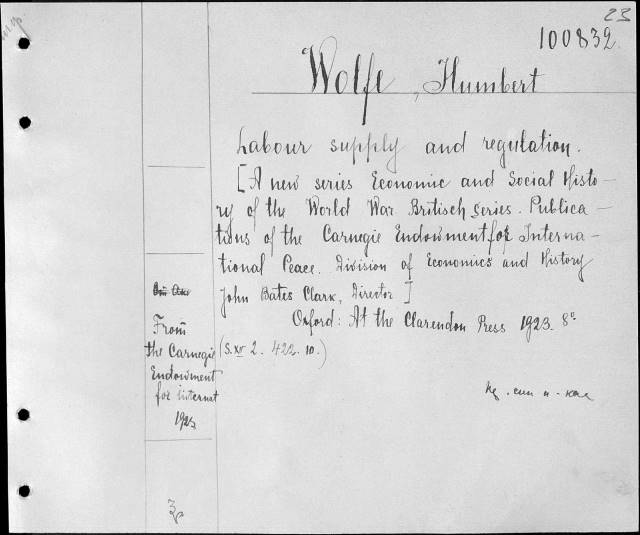 23
100832.
Wolfe, Humbert
Labour supply and regulation.
[A new series Economic and Social Histo-
ry of the World War Britisch Series. Publica-
tions of the Carnegie Endowment for Interna-
tional Peace. Division of Economics and History
John Bates Clark, Director]
Oxford: At the Clarendon Press 1923. 8°
(S. XV 2. 422. 10.)
From
the Carnegie
Endowment
for internat
1925